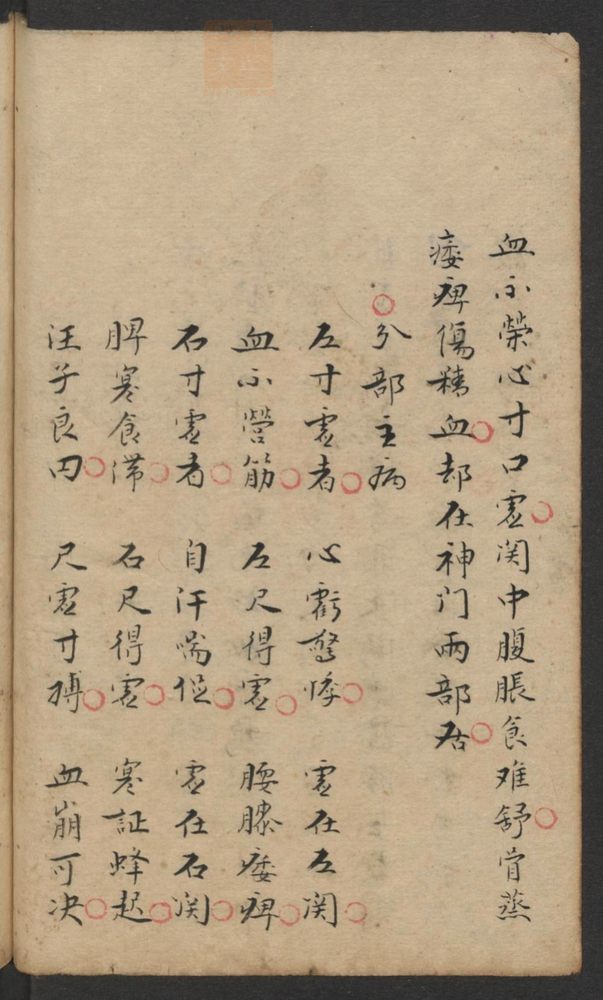 血不荣心寸口虚関中腹脹食难舒骨蒸
痿痺傷精血却在神门兩部居
分部主病
左寸虚者 心虧驚悸 虚在左関
血不營筋 左尺得虚 腰膝痿痺
右寸虚者 自汗喘促 虚在右関
脾寒食滞 右尺得虚 寒証蜂起
汪子良曰 尺虚寸搏 血崩可决